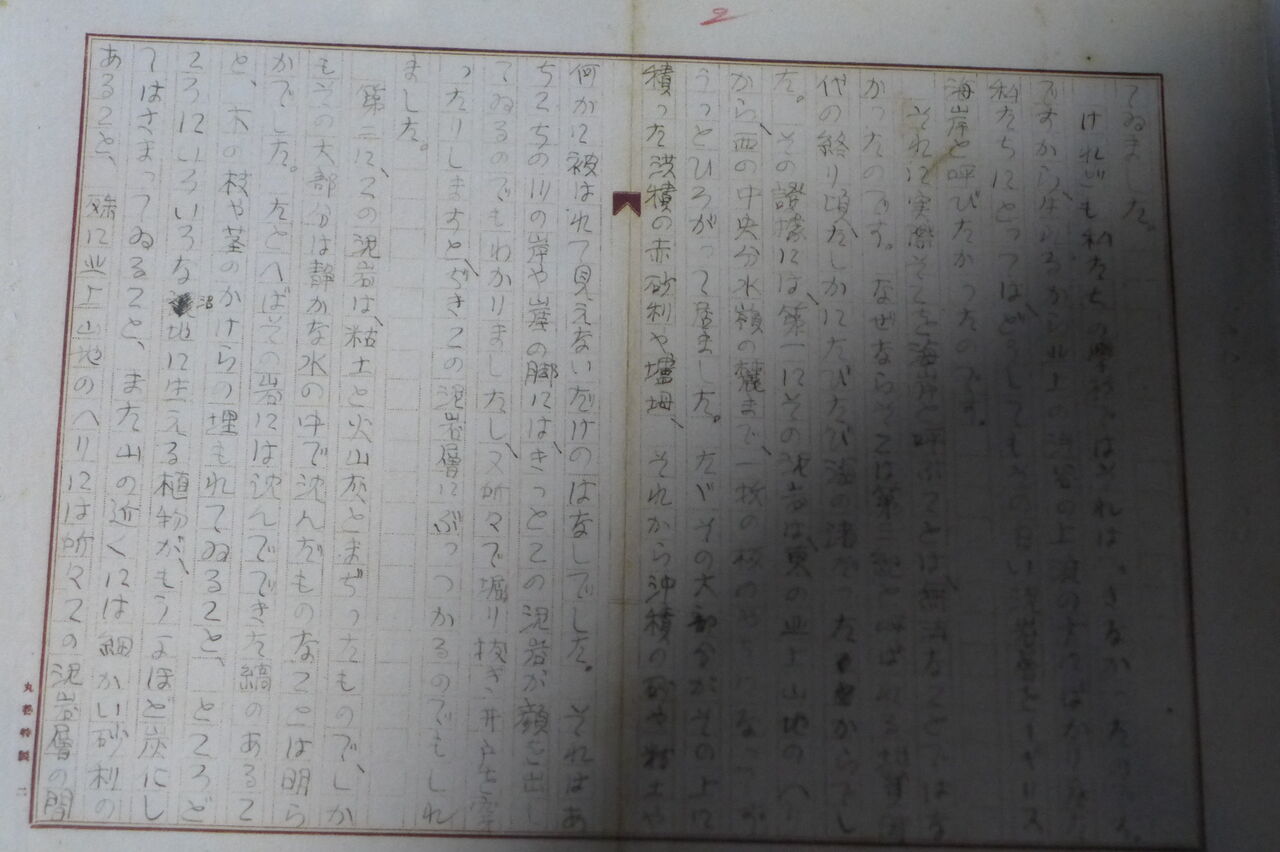 2
てゐました。
けれども私たちの はそれは、さうなかったのです。
ですから、 北上の の上 のたびばかりなった
私たちにとっては、どうしてもその白い泥岩層をイギリス
海岸と呼びたかったのです。
それに実際そこを海岸 呼ぶことは、無法なことではな
かったのです。なぜならそこは第三紀と呼ばれる地質時
代の終り頃、たしかにたびたび海の渚だったからでし
た。その證據には、第一にその泥岩は、東の北上山地のへり
から、西の中央分水嶺の麓まで、一枚の板のやうになって
うっとひろがって居ました。たゞその大部分がその上に
積った洪積の赤砂利や壚坶、それから沖積の砂や粘土や
何かに被はれて見えないだけのはなしでした。それはあ
ちこちの川の岸や崖の脚には、きっとこの泥岩が顔を出し
てゐるのでもわかりましたし、又所々で掘り抜き井戸を穿
ったりしますと、ぢきこの泥岩層にぶっつかるのでもしれ
ました。
第二に、この泥岩は、粘土と火山灰とまぢったもので、しか
もその大部分は静かな水の中で沈んだものなことは明ら
かでした。たとへばその岩には沈んでできた縞のあるこ
と、木の枝や茎のかけらの埋もれてゐること、ところど
ころにいろいろな沼地に生える植物が、もうよほど炭にし
てはさまってゐること、また山の近くには細かい砂利の
あること、殊に北上山地のへりには所々この泥岩層の間
丸善特製 二